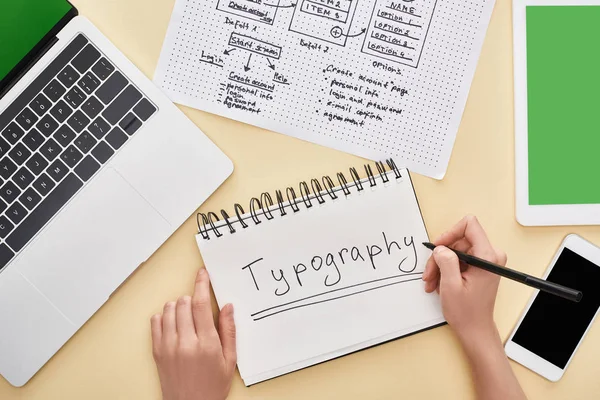 NAME
ITEM 3
option 1
option 2
option 3
option 4
OPTIONS
Defolt 2
Defolt 2
Start screen
Login
Help
Create account
personal info
password
agreement
Create account page
login and password
personal info
e-mail conf
agreement
Typography